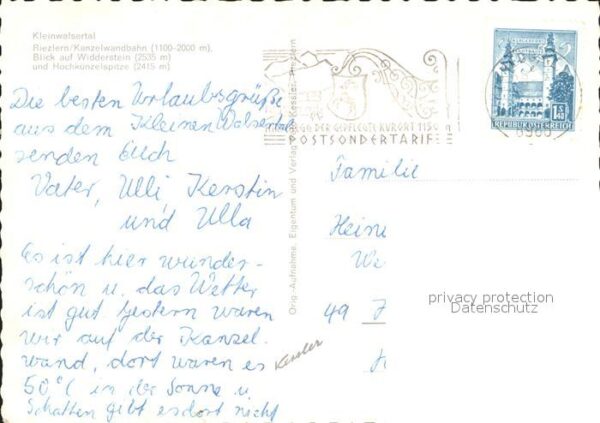 Kleinwalsertal
Riezlern/Kanzelwandbahn (1100-2000 m),
Blick auf Widderstein (2535 m)
und Hochkünzelspitze (2415 m)
Die besten Urlaubsgrüße
aus dem Kleinen Walsertal
senden Euch
Vater, Ulli Kerstin
und Ulla
Es ist hier wunder-
schön u. das Wetter
ist gut gestern waren
wir auf der Kanzel.
wand, dort waren es
50°C in der Sonne u.
Schatten gibt es dort nicht
Kessler
Orig.-Aufnahme, Eigentum und Verlag
DER GEPFLEGTE KURORT
POSTSONDERTARIF
REPUBLIK ÖSTERREICH
Familie
Hein
We
49
privacy protection
Datenschutz